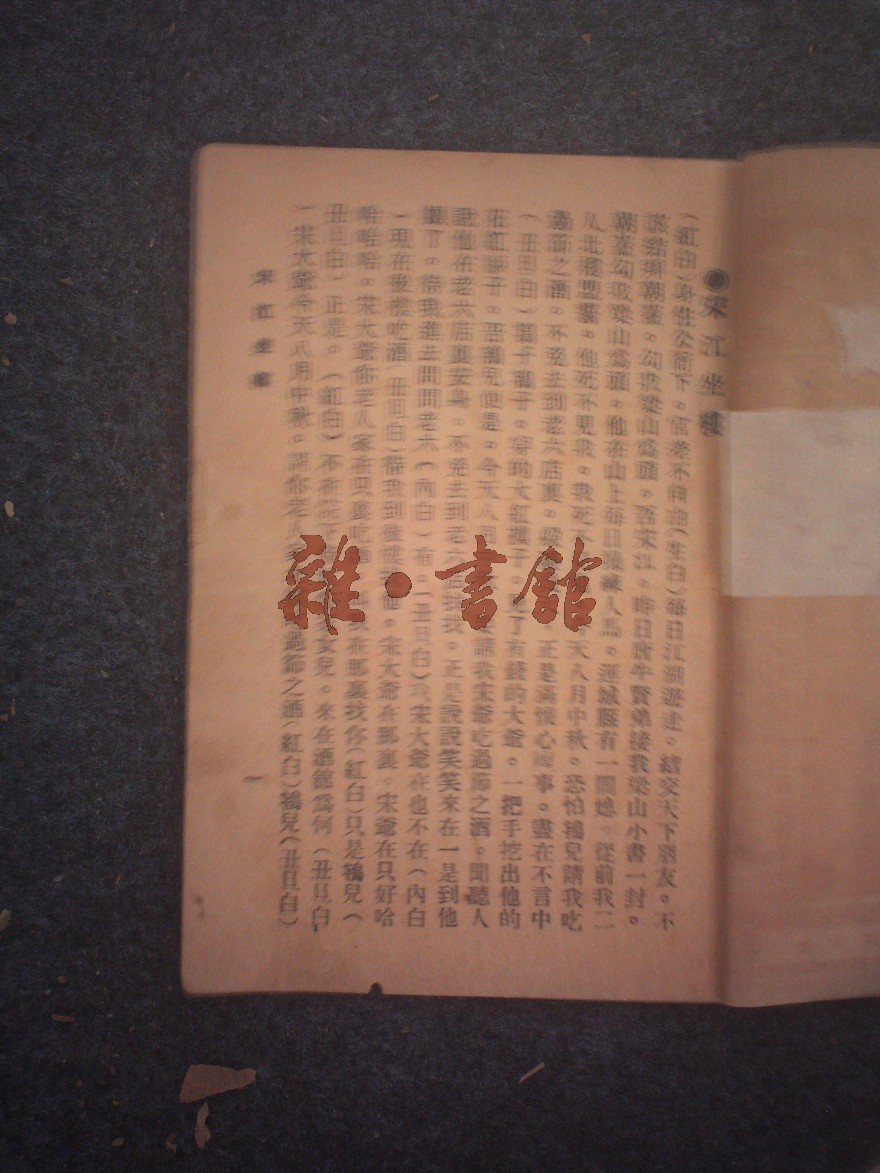 宋江坐樓
(紅白)身在公衙下。官差不自由(生白)每日江湖遊走。結交天下朋友。不
勾我梁山為頭。吾宋江。昨日唐牛賢弟接我梁山小書一封。
朝蓋勾我梁山為頭。他在山上每日操練人馬。運城縣有一閻媳。從前我二
人北樓盟誓。他死不見我。我死不 天八月中秋。恐怕鴇兒請我吃
過節之酒。不免去到老六店裏。 正是滿懷心腹事。盡在不言中
(丑旦白)鴇子鴇子。 大紅 了有錢的大爺。一把手挖出他的
花紅 子。吾鴇兒便是。今天八月 請我宋爺吃過節之酒。聞聽人
說他在老六店裏安身。不免去到老六店找找。正是說說笑笑來在一是到他
了。待我進去問問老六(內白) 。(丑旦白)我宋大爺在也不在(內白
)現在後樓吃酒(丑旦白)待我到後樓 他。宋大爺在那裏。宋爺在只好哈
哈哈哈。宋大爺你老人家在只裏吃酒 我在那裏找你(紅白)只是鴇兒(
丑旦白)正是。(紅白)不在 女兒。來在酒館為何(丑旦白
)宋大爺今天八月中秋。請你老人 過節之酒(紅白)鴇兒(丑旦白)
宋江坐樓
一
雜·書館